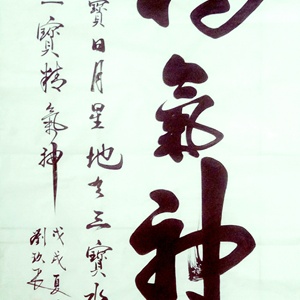 氣神
寶日月星地之三寶水
寶精氣神
戊戌夏
劉玖